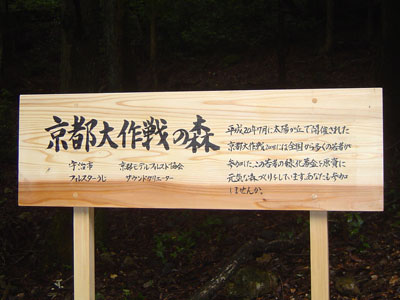 京都大作戦の森
宇治市 京都モデルフォレスト協会
フォレスターうじ サウンドクリエーター
平成20年7月に太陽が丘で開催された
京都大作戦2008には全国から多くの若者が
参加した。この若者の緑化募金を原資に
元気な森づくりをしています。あなたも参加
しませんか。